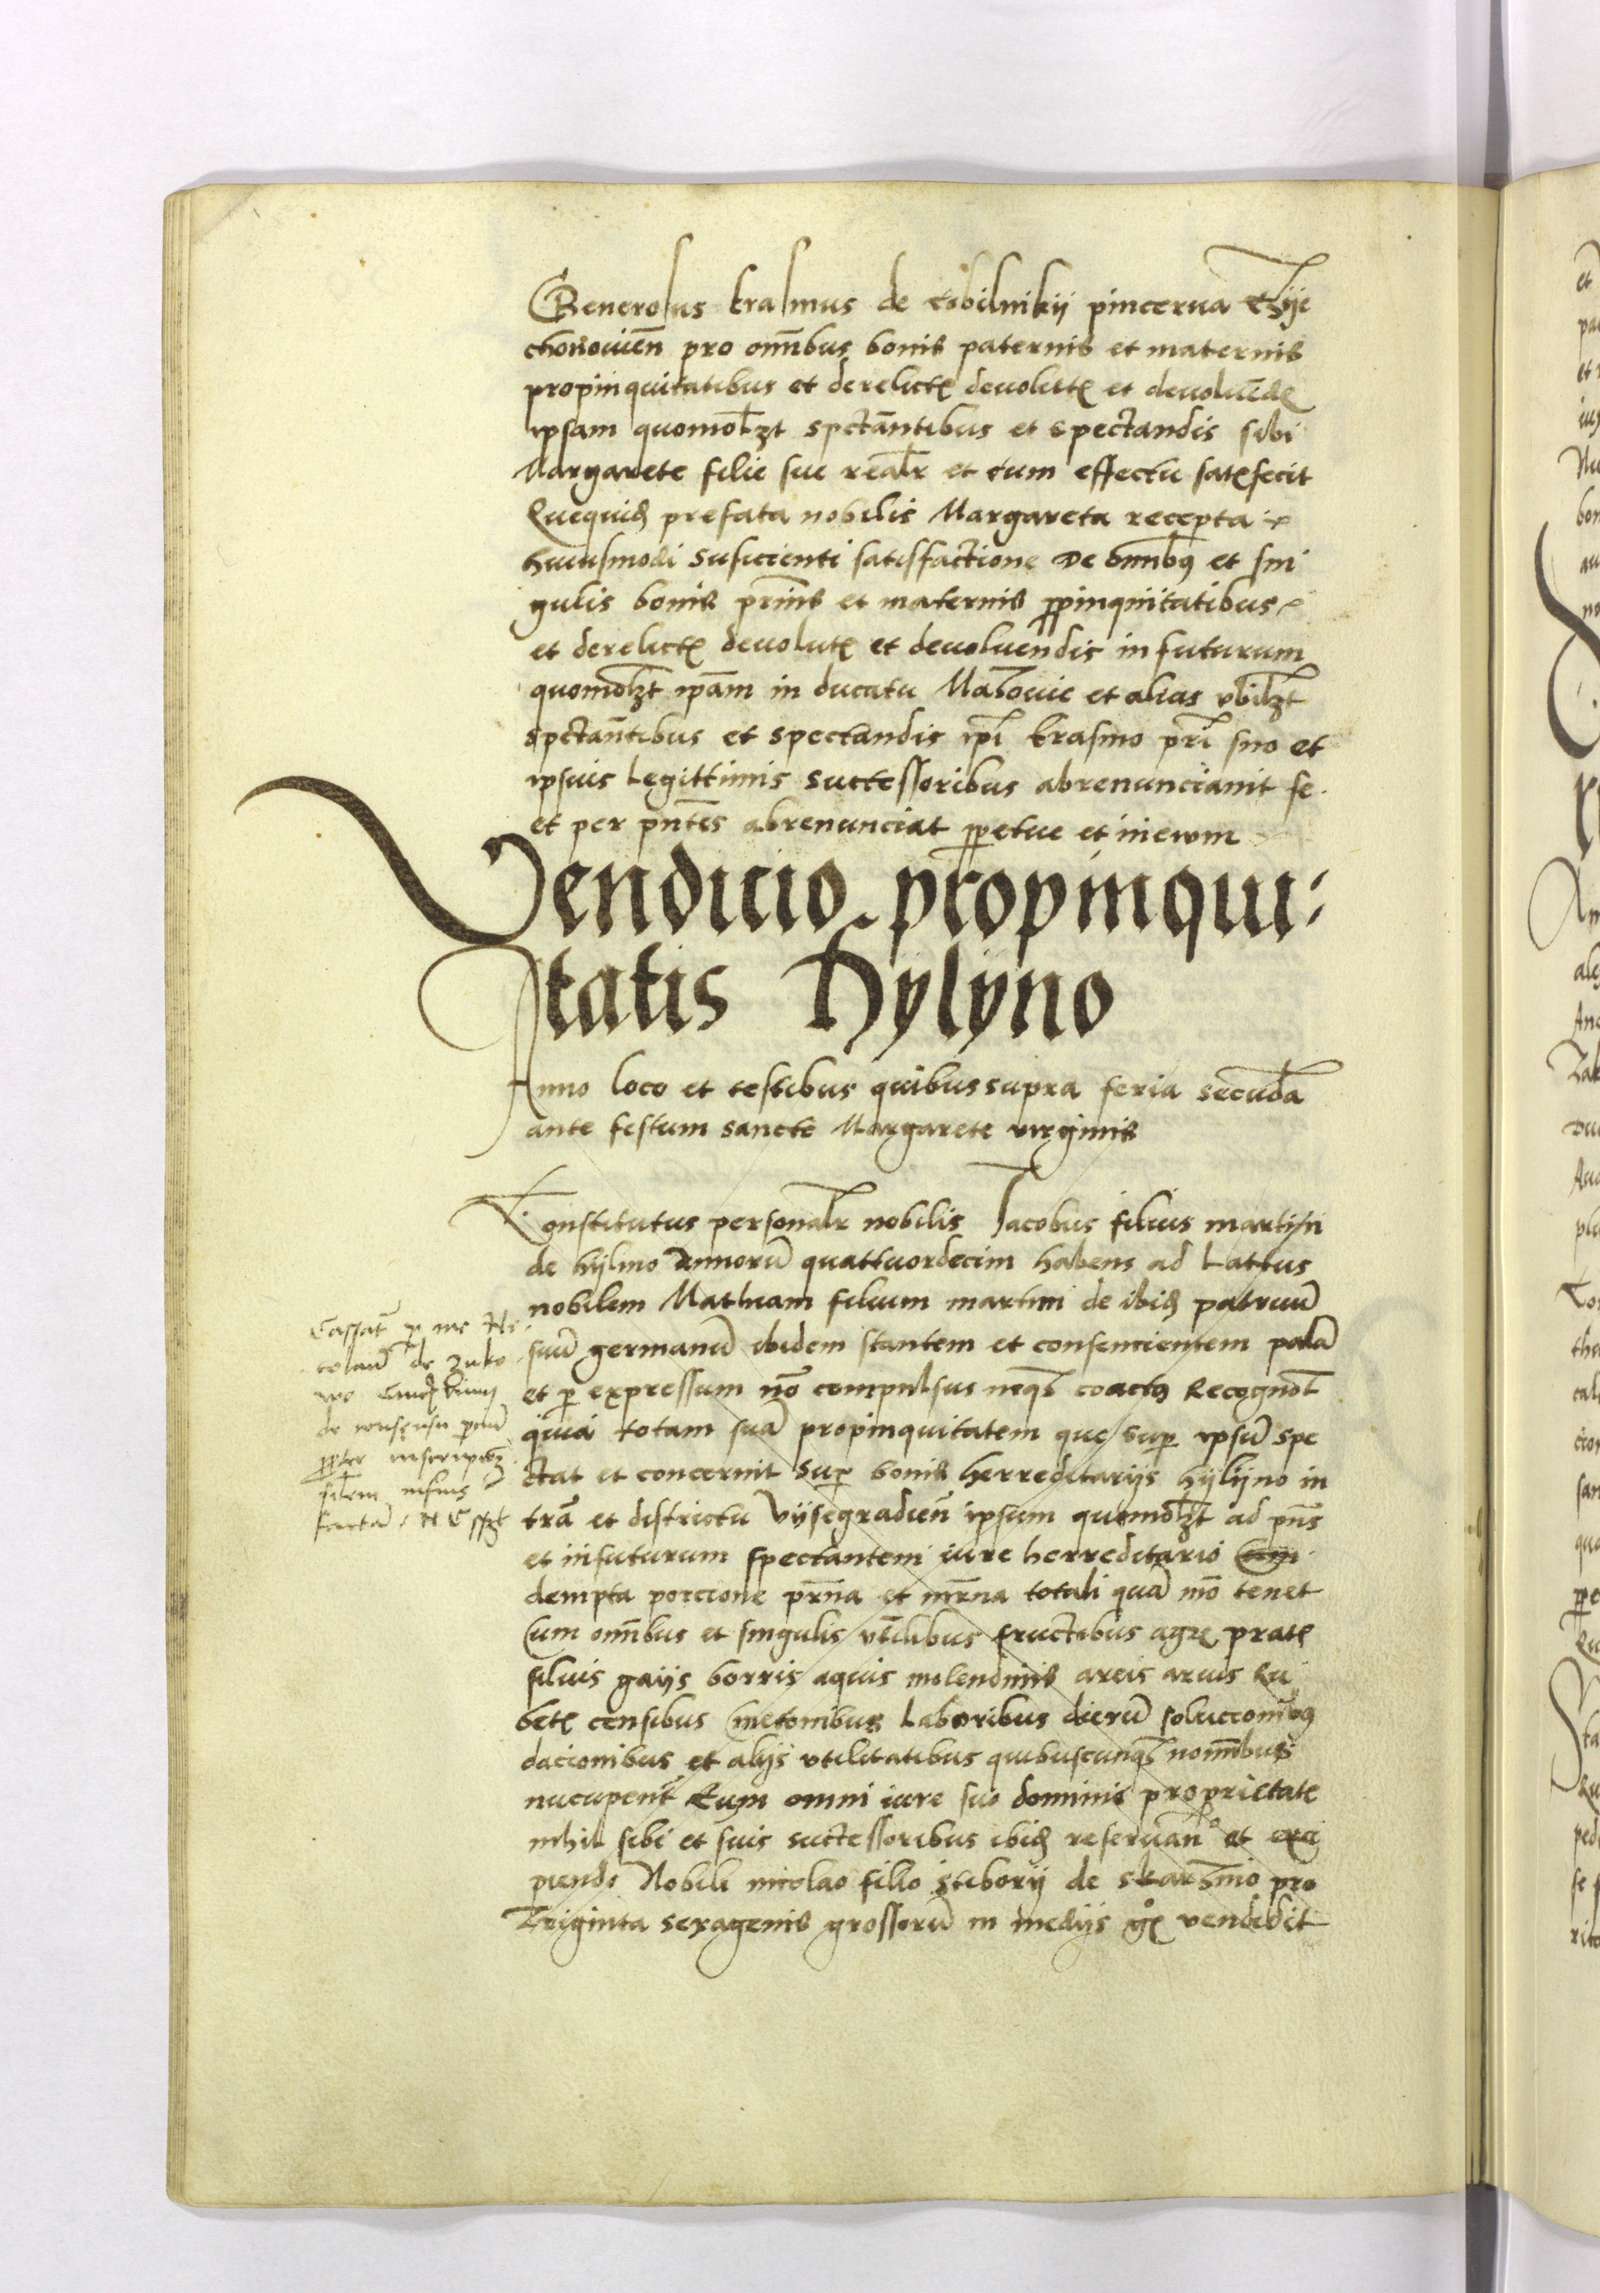 Generosus Erasmus de cobilnikij pincerna Czije
chonowien̄ pro om̄ibus bonis paternis et maternis
propinquitatibus et derelictꝭ deuolutꝭ et deuoluēdꝭ
ipsam quomolꝫt spctan̄tibus et spectandis sibi
Margarete filie sue realr̄ et cum effectu satꝭfecit
Quequid prefata nobilis Margareta recepta
huiusmodi suficienti satisfactione De om̄ibꝰ et sin
gulis bonis pr̄nis et maternis ꝓpinquitatibus
et derelictꝭ deuolutꝭ et deuoluendis in futurum
quomolꝫt ip̄am in ducatu Masouie et alias vbilꝫt
spctan̄tibus et spectandis ip̄i Erasmo pr̄i suo et
ipsius legittimis successoribus abrenunciauit se
et per pn̄tes abrenunciat ꝑpetue et in ewm
Vendicio propinqui
tatis Hylyno
Anno loco et testibus quibus supra feria secūda
ante festum sancte Margarete virginis
Constitutus personalr̄ nobilis Jacobus filius martini
de hijlino annorū quattuordecim habens ad lattus
nobilem Mathiam filium martini de ibid patruū
suū germanū ibidem stantem et consencientem palā
et ꝑ expressum nō compulsus neqꝫ coactꝰ Recognoꝉ
quia totam suā propinquitatem que sup ipsū spe
ctat et concernit sup bonis herreditarijs hijlijno in
tr̄a et districtu Vijsegradien̄ ipsum quomolꝫt ad pn̄s
et in futurum spectantem iure herreditario
dempta porcione pr̄na et mr̄na totali quā mō tenet
Cum om̄ibus et singulis vtilibus fructibus agrꝭ pratꝭ
siluis gaijs borris aquis molendinis areis aruis Ru
betꝭ censibus Cmetonibus laboribus dierū soluccionibꝰ
dacionibus et alijs vtilitatibus quibuscunqꝫ nomībus
nūcupent Cum omni iure suo dominio proprietate
nihil sibi et suis successoribus ibid reseruan̊ et exci
piendo Nobili nicolao filio stiborij de skarsino pro
Triginta sexagenis grossorū in medijs gꝭ vendedit
Cassat̄ ꝑ me Ni
colaū de Zuko
wo
de consensu
ꝓpter inscripcōꝫ
silem infius
factā